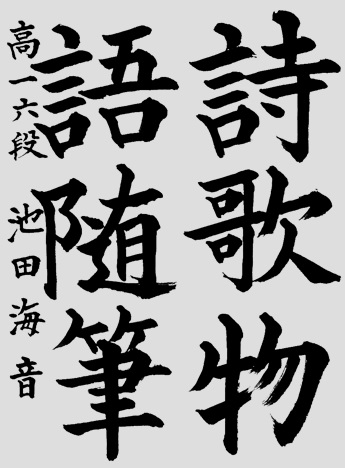 詩歌物
語随筆
高一六段 池田海音